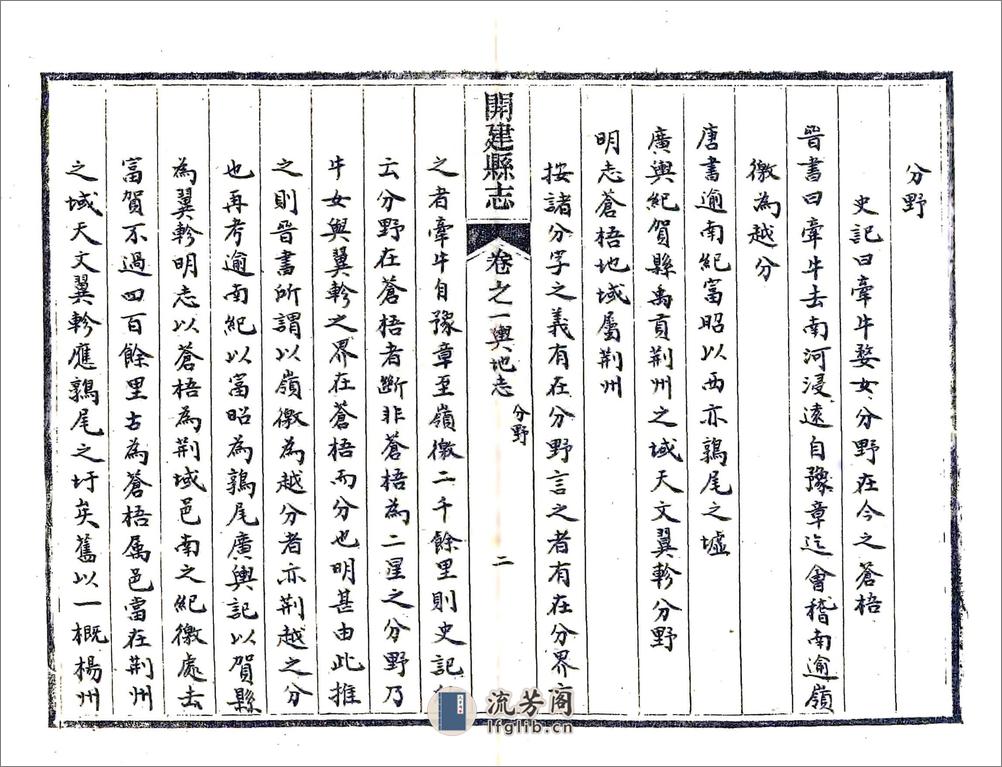 分野
史記曰牽牛婺女分野在今之蒼梧
晉書曰牽牛去南河浸遠自豫章迄會稽南逾嶺
徼為越分
唐書逾南紀富昭以西亦鶉尾之墟
廣輿紀賀縣禹貢荆州之域天文翼軫分野
明志蒼梧地域屬荆州
按諸分字之義有在分野言之者有在分界
開建縣志 卷之一輿地志 分野 二
之者牽牛自豫章至嶺徼二千餘里則史記
云分野在蒼梧者斷非蒼梧為二星之分野乃
牛女與翼軫之界在蒼梧而分也明甚由此推
之則晉書所謂以嶺徼為越分者亦荆越之分
也再考逾南紀以富昭為鶉尾廣輿記以賀縣
為翼軫明志以蒼梧為荆域邑南之紀徼處去
富賀不過四百餘里古為蒼梧属邑當在荆州
之域天文翼軫應鶉尾之圩矣舊以一概楊州
流芳阁
lfglib.cn